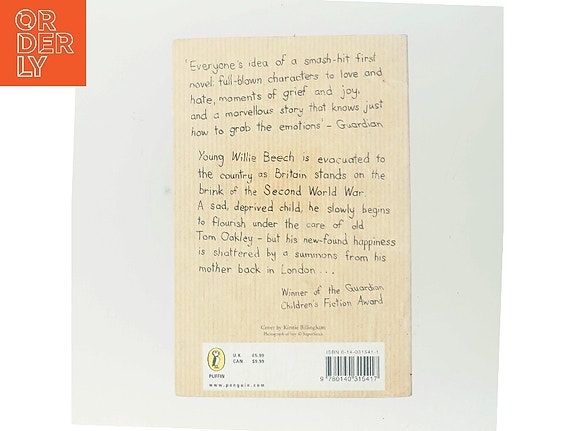 OR
DER
LY
'Everyone's idea of a smash-hit first
novel: full-blown characters to love and
hate, moments of grief and joy,
and a marvellous story that knows just
how to grab the emotions' – Guardian
Young Willie Beech is evacuated to
the country as Britain stands on the
brink of the Second World War.
A sad, deprived child, he slowly begins
to flourish under the care of old
Tom Oakley – but his new-found happiness
is shattered by a summons from his
mother back in London . . .
Winner of the Guardian
Children's Fiction Award
Cover by Kirstie Billingham
Photograph of boy © Superstock
PUFFIN
U.K. £5.99
CAN $9.99
www.penguin.com
ISBN 0-14-031541-1
9 780140 315417